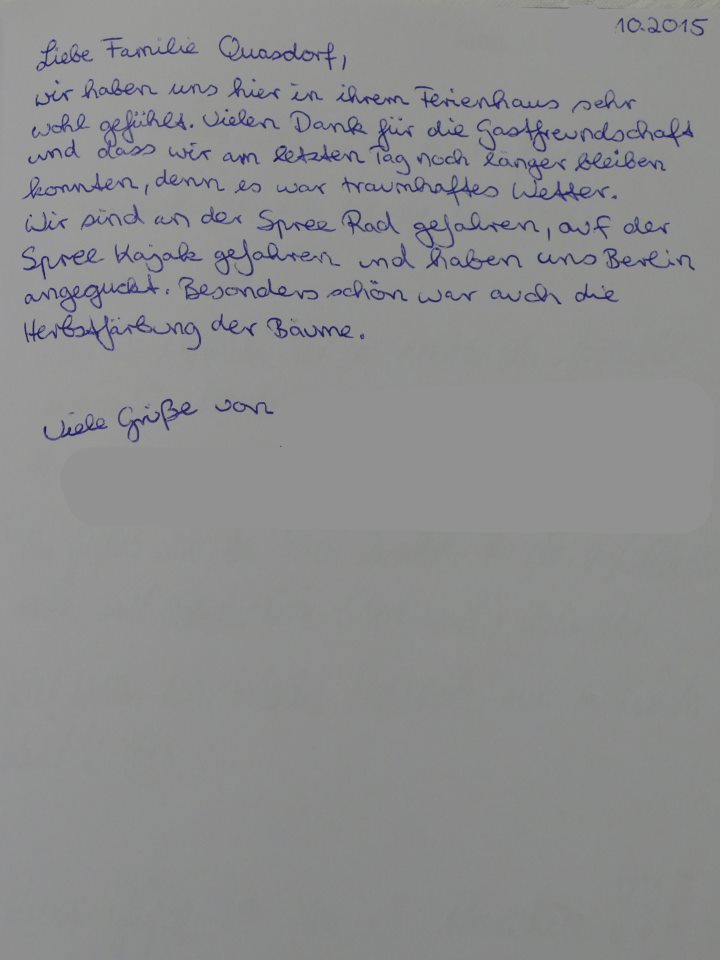 10.2015
Liebe Familie Quasdorf,
wir haben uns hier in ihrem Ferienhaus sehr
wohl gefühlt. Vielen Dank für die Gastfreundschaft
und dass wir am letzten Tag noch länger bleiben
konnten, denn es war traumhaftes Wetter.
Wir sind an der Spree Rad gefahren, auf der
Spree Kajak gefahren und haben uns Berlin
angeguckt. Besonders schön war auch die
Herbstfärbung der Bäume.
Viele Grüße von